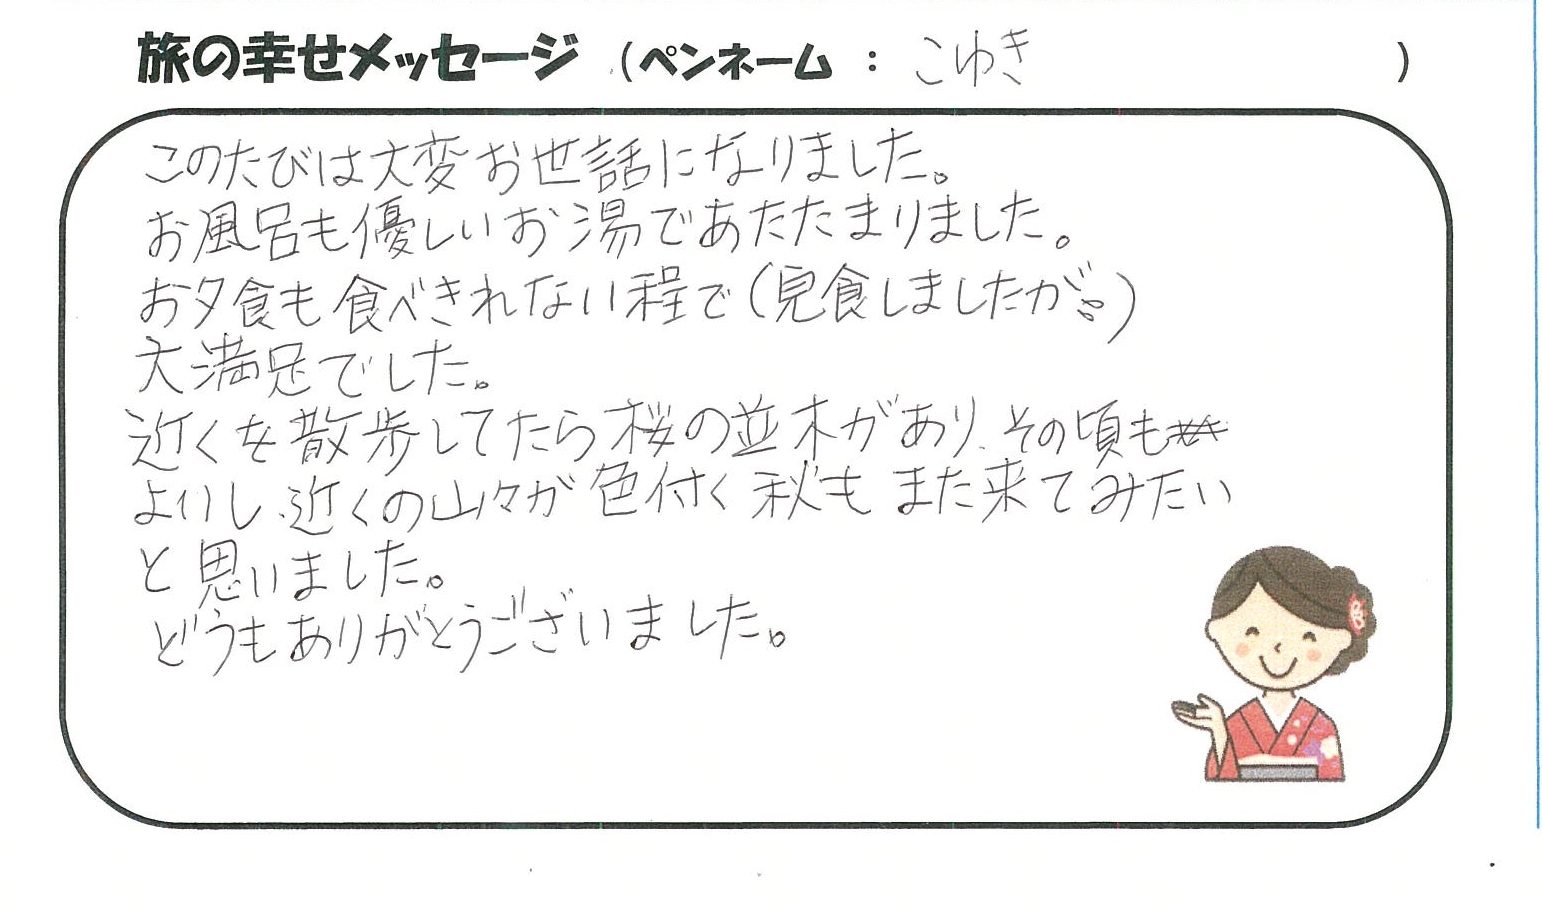 旅の幸せメッセージ (ペンネーム : こゆき )
このたびは大変お世話になりました。
お風呂も優しいお湯であたたまりました。
お夕食も食べきれない程で(完食しましたが。)
大満足でした。
近くを散歩してたら桜の並木があり、その頃も
よいし、近くの山々が色付く秋もまた来てみたい
と思いました。
どうもありがとうございました。